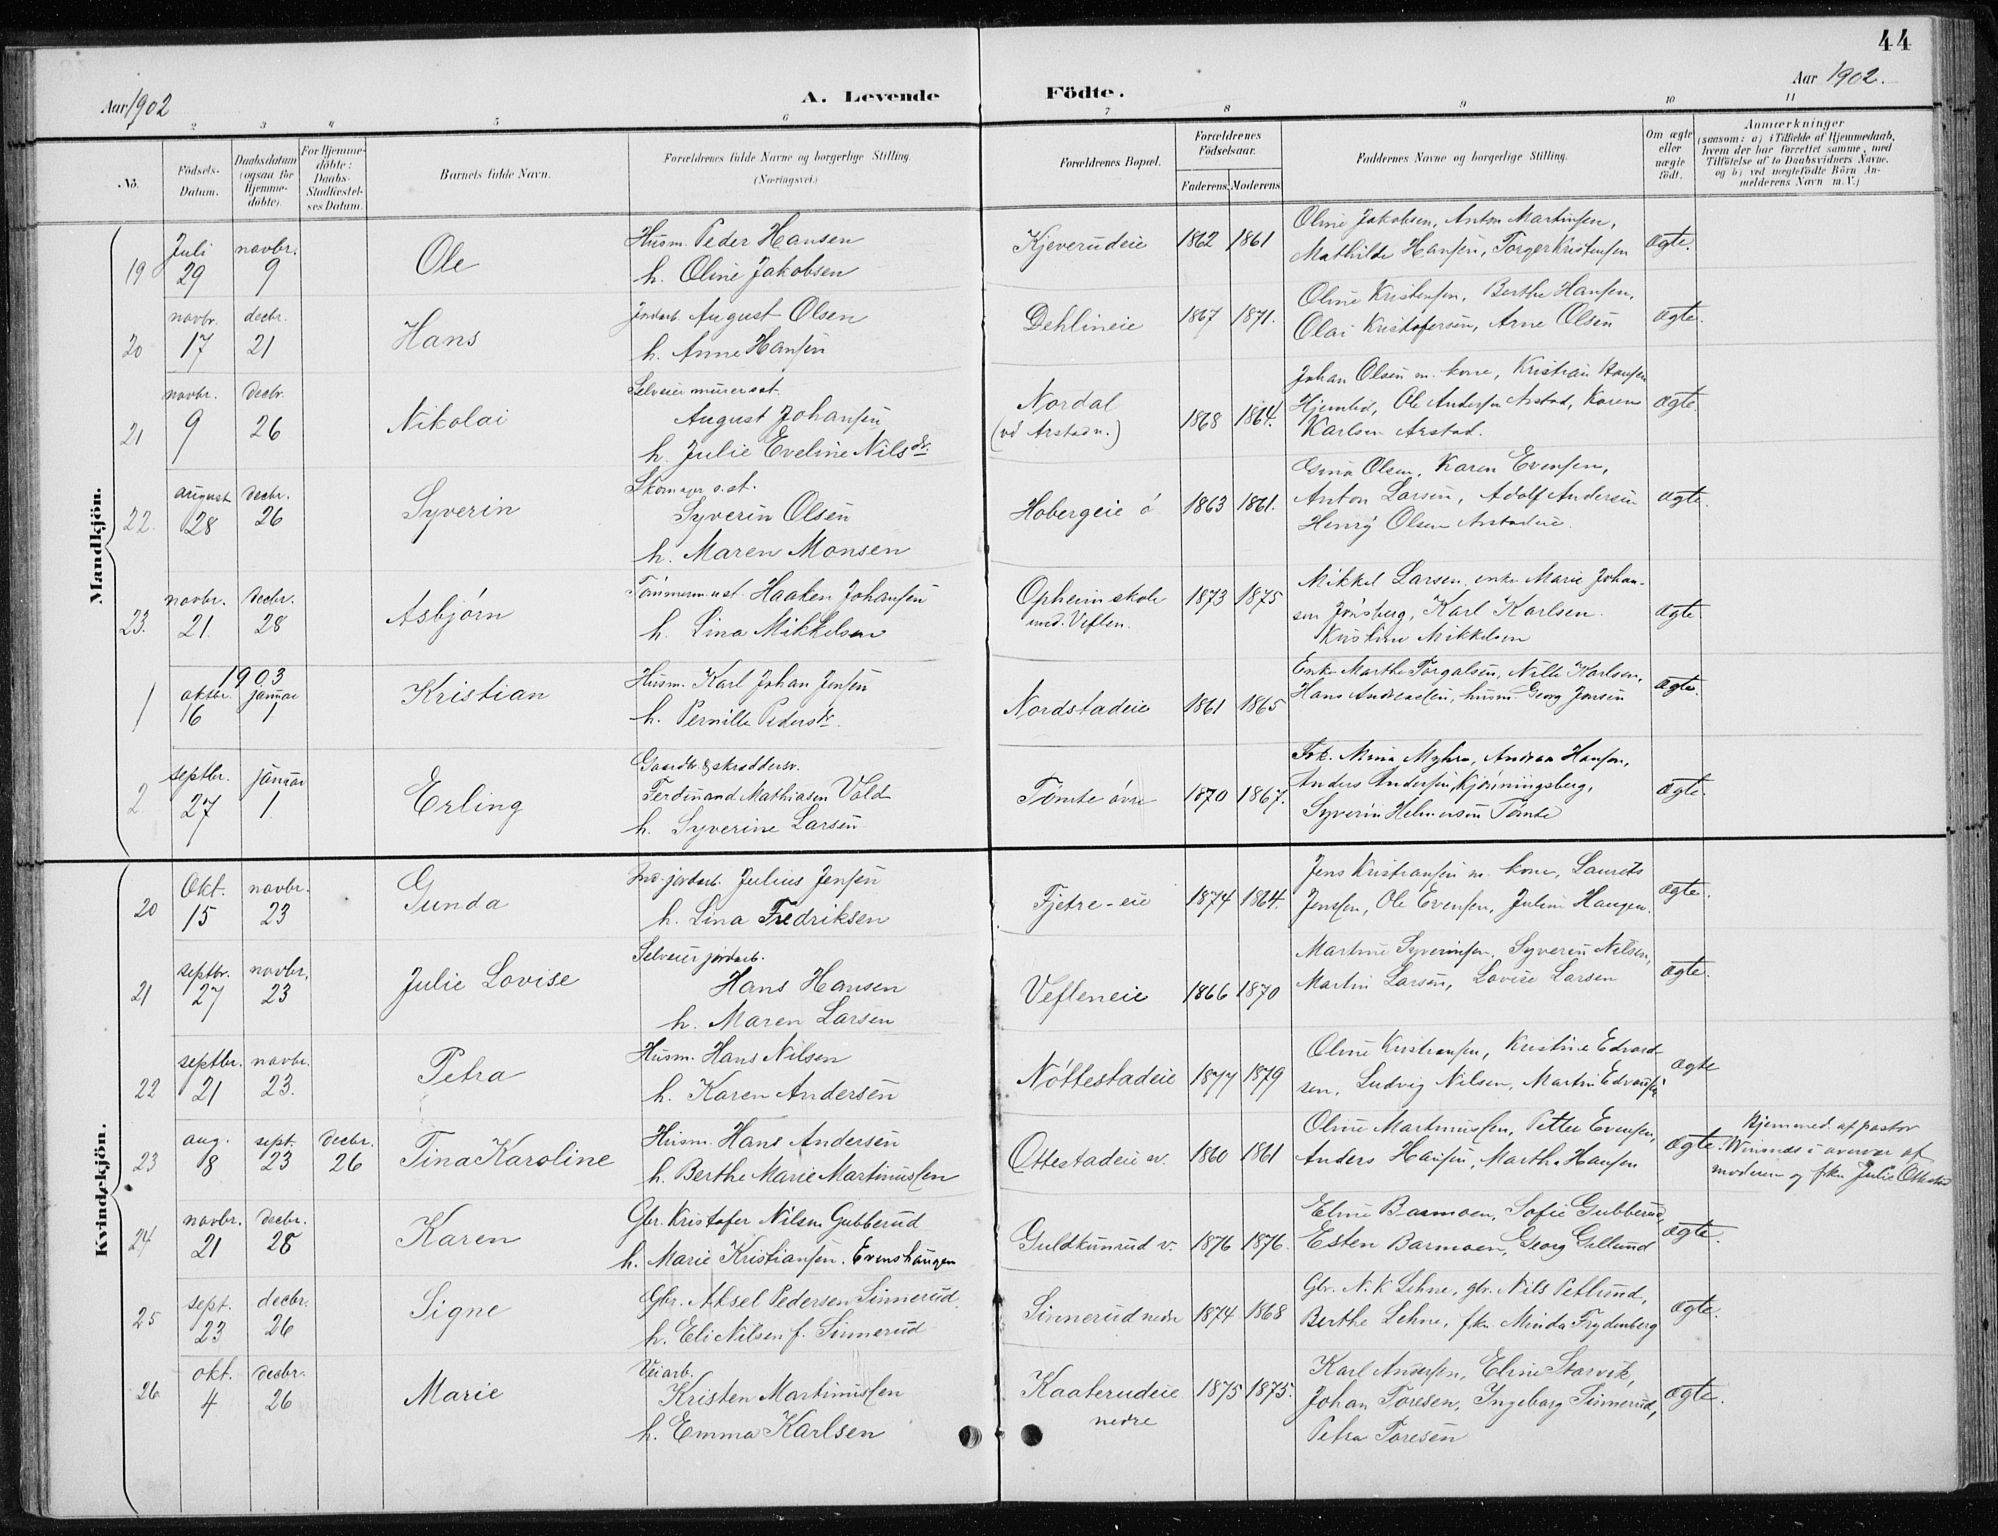 44
Aar 1902
A. Levende Födte.
Aar 1902.
2 3 4 5 6 7 8 9 10 11
No.
Födsels-Datum.
Daabsdatum (ogsaa for Hjemme-döbte).
For Hjemme-döbte: Daabs-Stadfæstel-ses Datum.
Barnets fulde Navn.
Forældrenes fulde Navne og borgerlige Stilling.
(Næringsvei.)
Forældrenes Bopæl.
Forældrenes Födselsaar.
Faderens. Moderens.
Faddernes Navne og borgerlige Stilling.
Om ægte eller uægte födt.
Anmærkninger
(saasom: a) i Tilfælde af Hjemmedaab, hvem der har forrettet samme, med Tilföielse af to Daabsvidners Navne, og b) ved uægtefödte Börn Anmelderens Navn m. V.)
Mandkjön.
19 Juli 29 novbr. 9 Ole
Husm. Peder Hansen
h. Oline Jakobsen
Kjeverudeie 1862 1861
Oline Jakobsen, Anton Martinsen,
Mathilde Hansen, Torger Kristensen
ægte.
20 novbr. 17 decbr. 21 Hans
Jordarb. August Olsen
h. Anne Hansen
Dehlineie 1867 1871.
Oline Kristensen, Berthe Hansen,
Olai Kristofersen, Arne Olsen
ægte.
21 novbr. 9 decbr. 26 Nikolai
Selveier murer
August Johansen
h. Julie Eveline Nilsdtr.
Nordal
(vd Arstad n.) 1868 1864.
Johan Olsen m. kone, Kristian Hansen
Ole Andersen Arstad, Karen
Karlsen Arstad.
ægte.
22. august 28 decbr. 26 Syverin
Skomager
Syverin Olsen
h. Maren Monsen
Hobergeie ö 1863 1861.
Olsen, Karen Evensen,
Anton Larsen, Adolf Andersen
Henry Olsen Arstadeie.
ægte.
23. novbr. 21. decbr. 28 Asbjörn
Haaken Johansen
h. Lina Mikkelsen
Opheim skole
und. Veflen. 1873 1875
Mikkel Larsen, enke Marie Johan-
sen Jönsberg, Karl Karlsen.
Kristine Mikkelsen
ægte.
1903
1 oktbr. 16 januar 1 Kristian
Husm. Karl Johan Jensen
h. Pernille Pedersdtr.
Nordstadeie 1861 1865
Enke Marthe Torgalsen, Nille Karlsen,
Hans Andreassen, husm. Georg Jensen
ægte.
2 septbr. 27 januar 1. Erling
Gaardbr. & skræddersv.
Ferdinand Mathiasen Vold
h. Syverine Larsen
Tömte övre 1870 1867.
Frk. Nina Myhre, Andrea Hansen,
Anders Andersen Kjönningsberg,
Syverin Helmersen Tömte
ægte.
Kvindekjön.
20 Okt. 15 novbr. 23 Gunda
Ind. jordarb. Julius Jensen
h. Lina Fredriksen
Fjetre-eie 1874 1864.
Jens Kristiansen m. kone, Laurits
Jensen, Ole Evensen, Julius Haugen.
ægte.
21 septbr. 27 novbr. 23 Julie Lovise
Selveier jordarb.
Hans Hansen
h. Maren Larsen
Vefleneie 1866 1870
Martine Syverinsen, Syverin Nilsen,
Martin Larsen, Lovise Larsen
ægte.
22 septbr. 21 novbr. 23. Petra
Husm. Hans Nilsen
h. Karen Andersen
Nöttestadeie 1877 1879
Oline Kristiansen, Kristine Edvard-
sen, Ludvig Nilsen, Martin Edvardsen
ægte
23 aug. 8 sept. 23 decbr. 26 Tina Karoline
Husm. Hans Andersen
h. Berthe Marie Martinussen
Ottestadeie n. 1860 1861
Oline Martinussen, Petter Evensen,
Anders Hansen, Marthe Hansen
ægte.
Hjemmed. af pastor
Winsnes i overvær af
moderen og frkn Julie Ottestad
24 novbr. 21 decbr. 28 Karen
Gbr. Kristofer Nilsen Gubberud
h. Marie Kristiansen. Evenshaugen
Guldkunrud v. 1876 1876.
Eline Barmoen, Sofie Gubberud,
Esten Barmoen, Georg Gullund
ægte.
25 sept. 23 decbr. 26 Signe
Gbr. Aksel Pedersen Sinnerud.
h. Eli Nilsen f. Sinnerud
Sinnerud nedre 1874 1868
Gbr. N. K. Lehne, gbr. Nils Petlund,
Berthe Lehne, frkn Minda Frydenberg
ægte.
26 okt. 4 decbr. 26 Marie
Veiarb.
Kristen Martinussen
h. Emma Karlsen
Kaaterudeie
nedre 1875 1875.
Karl Andersen, Eline Starvik,
Johan Toresen, Ingeborg Sinnerud,
Petra Toresen
ægte.